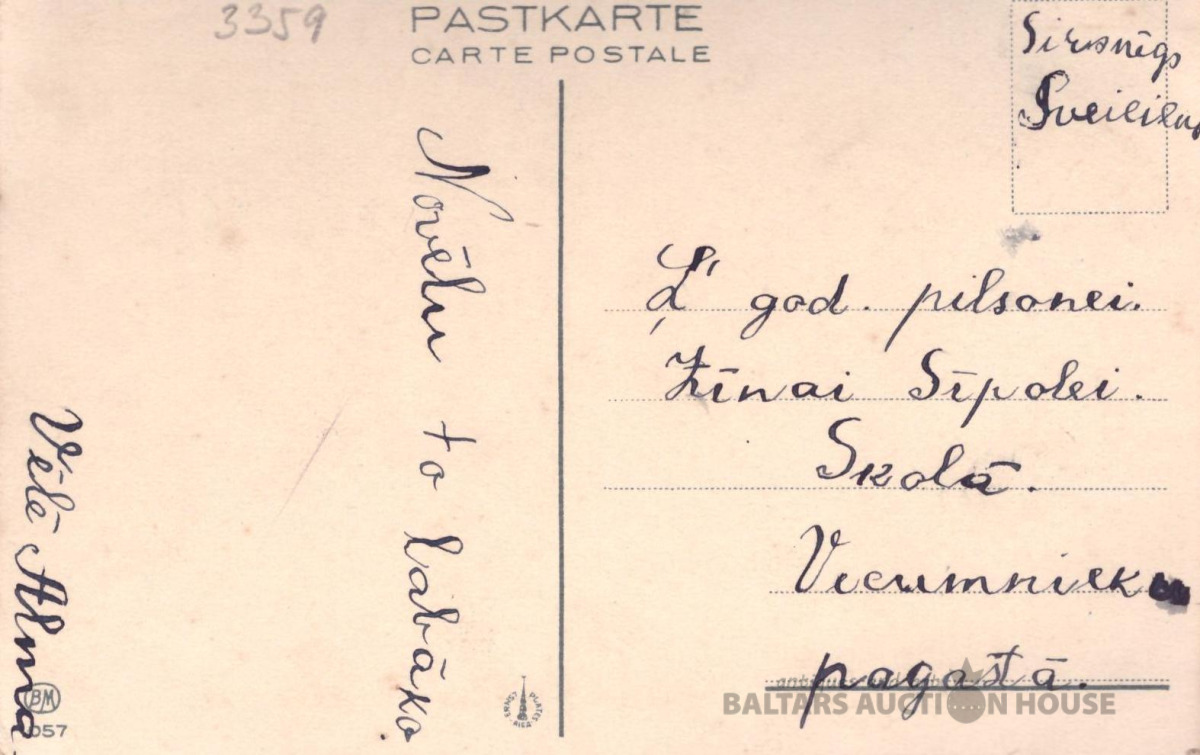 3359
PASTKARTE
CARTE POSTALE
Sirsnīgs
Sveiciens
Novēlu to labāko
Vēlē Alma
Ļ. god. pilsonei.
Zīnai Sīpolei.
Skolā.
Vecumnieku
pagastā.
BM
057
ERNST PLATES
RIGA
BALTARS AUCTION HOUSE